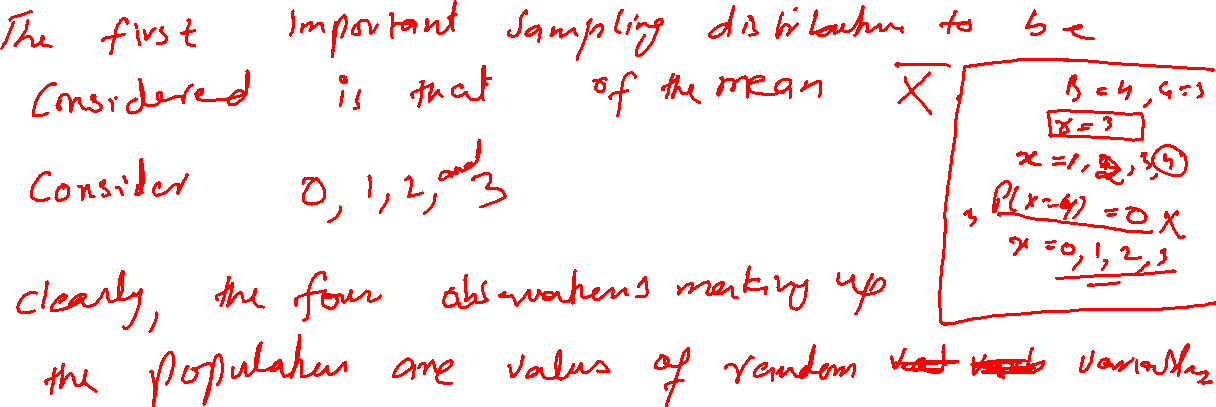 The first important sampling distribution to be
Considered is that of the mean X̅
Consider 0, 1, 2, and 3
Clearly, the four observations making up
the population are values of random variables
B = 4, G = 3
r = 3
x = 1, 2, 3, 4
P(X=4) = 0 X
x = 0, 1, 2, 3